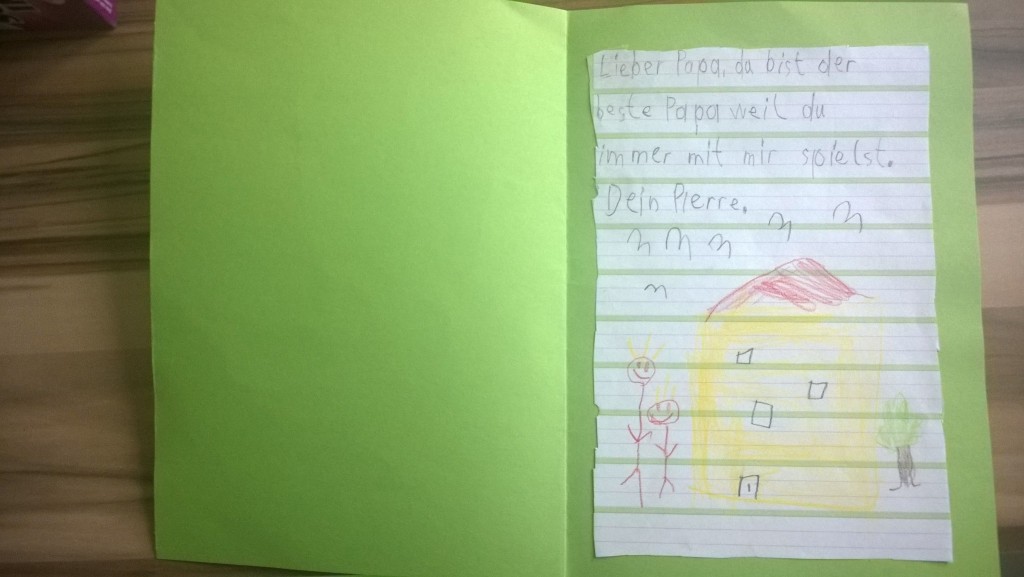 Lieber Papa, du bist der
beste Papa weil du
immer mit mir spielst.
Dein Pierre.